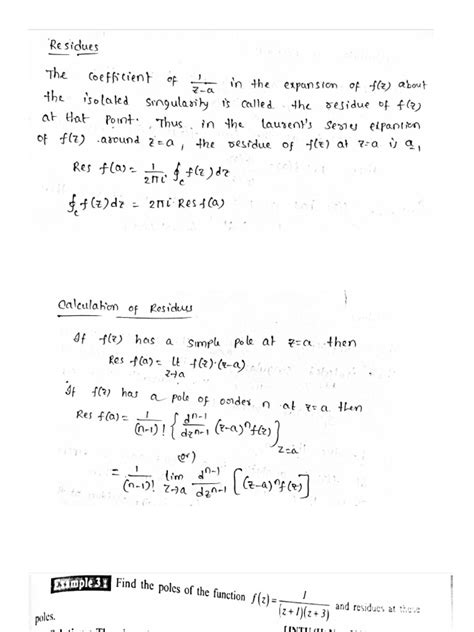 Residues
The coefficient of 1/(z-a) in the expansion of f(z) about
the isolated singularity is called the residue of f(z)
at that point. Thus in the laurent's series expantion
of f(z) around z=a, the residue of f(z) at z=a is a₁
Res f(a) = 1/(2πi) ∮_c f(z) dz
∮_c f(z) dz = 2πi Res f(a)
Calculation of Residues
If f(z) has a simple pole at z=a then
Res f(a) = lt_{z→a} f(z)·(z-a)
If f(z) has a pole of order n at z=a then
Res f(a) = 1/(n-1)! { d^{n-1}/dz^{n-1} (z-a)^n f(z) }_{z=a}
(or)
= 1/(n-1)! lim_{z→a} d^{n-1}/dz^{n-1} [(z-a)^n f(z)]
Example 3 : Find the poles of the function f(z) = 1/((z+1)(z+3)) and residues at these
poles.